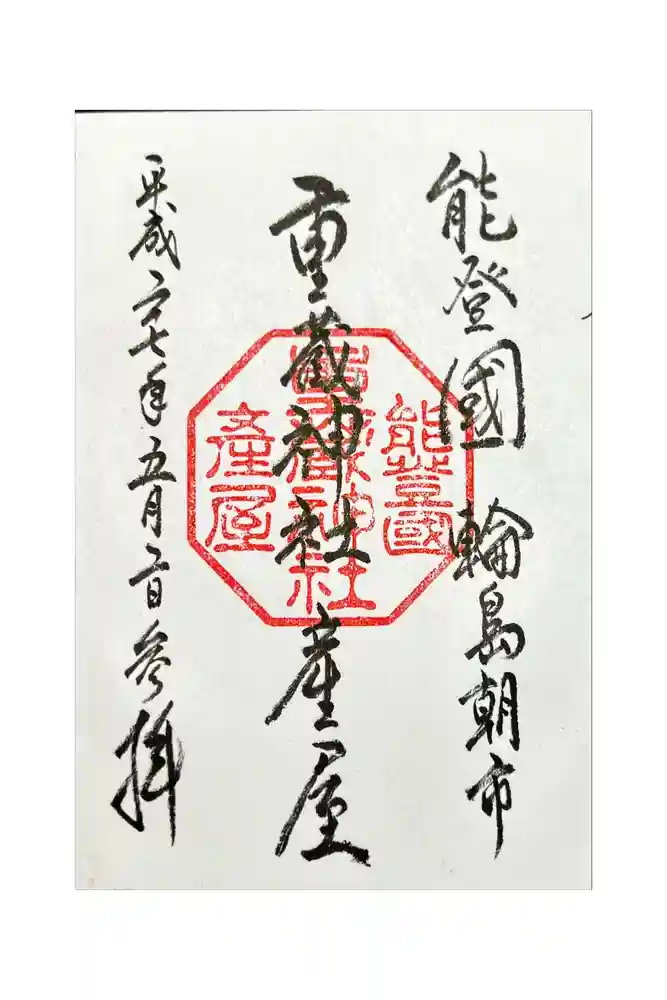 能登國 輪島朝市
重蔵神社 産屋
平成二十七年五月二日参拝
能登國
重蔵神社
産屋